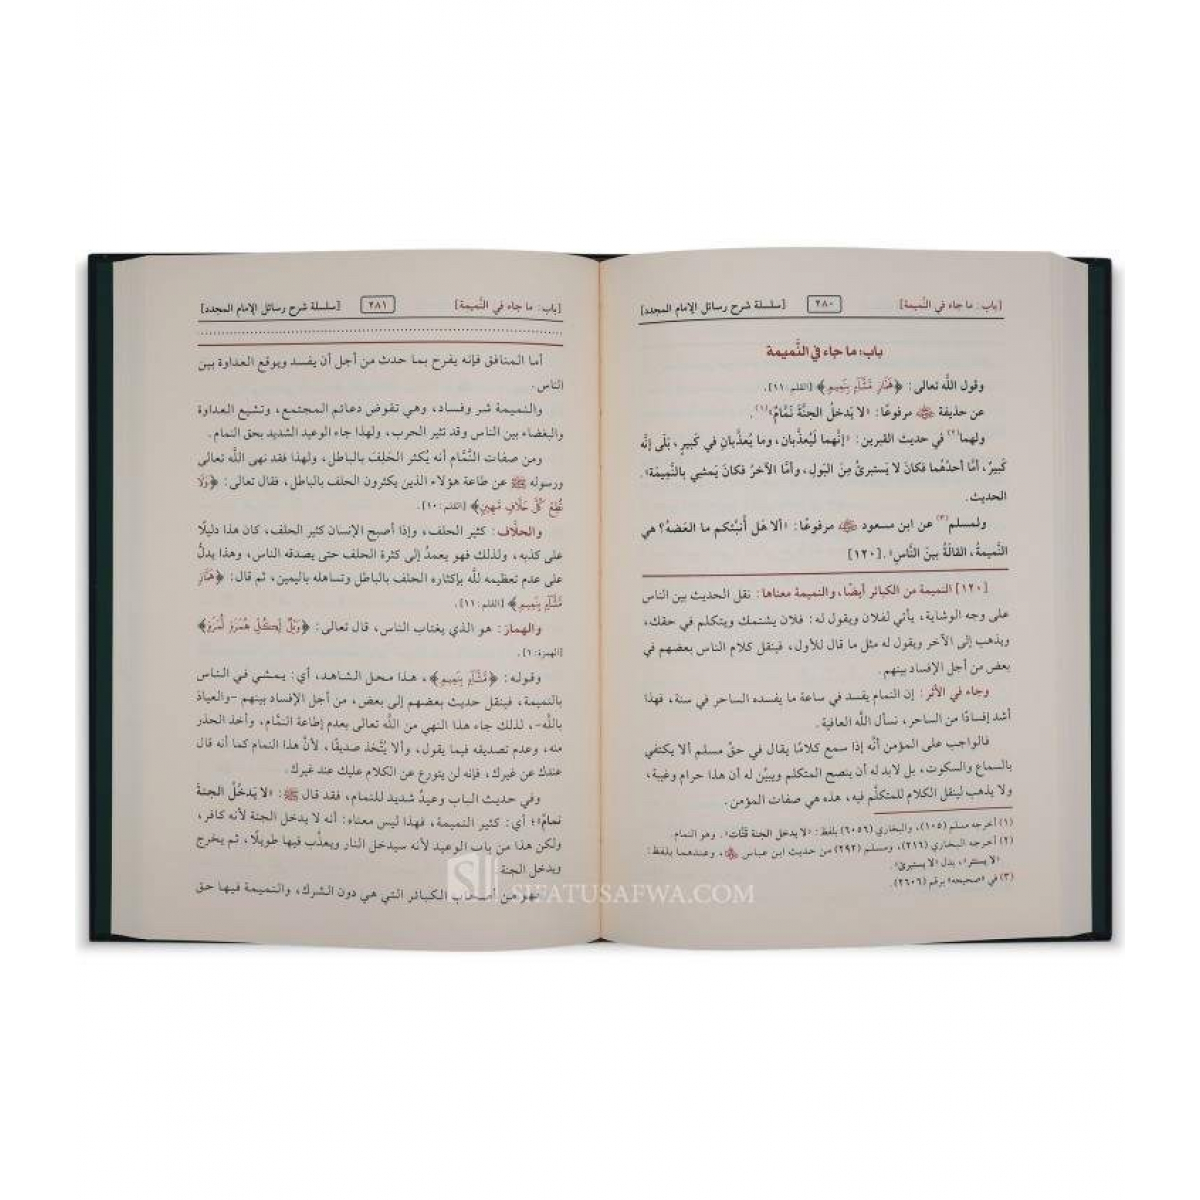 [باب: ما جاء في النَّميمة] ٢٨٠ [سلسلة شرح رسائل الإمام المجدد]
باب: ما جاء في النَّميمة
وقول اللَّه تعالى: ﴿هَمَّازٍ مَّشَّآءٍ بِنَمِيمٍ﴾ [القلم: ١١].
عن حذيفة رضي الله عنه مرفوعًا: «لا يَدخلُ الجنَّةَ نَمَّامٌ»(١).
ولهما(٢) في حديث القبرين: «إنَّهما لَيُعذَّبانِ، وما يُعذَّبانِ في كَبيرٍ، بَلَى إنَّه
كَبيرٌ، أمَّا أحدُهما فكانَ لا يَستبرئُ مِنَ البَولِ، وأمَّا الآخرُ فكانَ يَمشي بالنَّميمَةِ».
الحديث.
ولمسلم(٣) عن ابن مسعود رضي الله عنه مرفوعًا: «ألا هَل أُنبِّئكم ما العَضهُ؟ هي
النَّميمةُ، القالَةُ بَينَ النَّاسِ». [١٢٠]
[١٢٠] النميمة من الكبائر أيضًا، والنميمة معناها: نقل الحديث بين الناس
على وجه الوشاية، يأتي لفلان ويقول له: فلان يشتمك ويتكلم في حقك،
ويذهب إلى الآخر ويقول له مثل ما قال للأول، فينقل كلام الناس بعضهم في
بعض من أجل الإفساد بينهم.
وجاء في الأثر: إن النمام يفسد في ساعة ما يفسده الساحر في سنة، فهذا
أشد إفسادًا من الساحر، نسأل اللَّه العافية.
فالواجب على المؤمن أنَّه إذا سمع كلامًا يقال في حقِّ مسلم ألا يكتفي
بالسماع والسكوت، بل لابد له أن ينصح المتكلم ويبيِّن له أن هذا حرام وغيبة،
ولا يذهب لينقل الكلام للمتكلَّم فيه، هذه هي صفات المؤمن.
(١) أخرجه مسلم (١٠٥)، والبخاري (٦٠٥٦) بلفظ: «لا يدخل الجنة قتَّات». وهو النمام.
(٢) أخرجه البخاري (٢١٦)، ومسلم (٢٩٢) من حديث ابن عباس رضي الله عنه، وعندهما بلفظ:
«لا يستتر»، بدل «لا يستبرئ».
(٣) في «صحيحه» برقم (٢٦٠٦).
[باب: ما جاء في النَّميمة] ٢٨١ [سلسلة شرح رسائل الإمام المجدد]
أما المنافق فإنه يفرح بما حدث من أجل أن يفسد ويوقع العداوة بين
الناس.
والنميمة شر وفساد، وهي تقوض دعائم المجتمع، وتشيع العداوة
والبغضاء بين الناس وقد تثير الحرب، ولهذا جاء الوعيد الشديد بحق النمام.
ومن صفات النَّمَّام أنه يُكثر الحَلِفَ بالباطل، ولهذا فقد نهى اللَّه تعالى
ورسوله ﷺ عن طاعة هؤلاء الذين يكثرون الحلف بالباطل، فقال تعالى: ﴿وَلَا
تُطِعْ كُلَّ حَلَّافٍ مَّهِينٍ﴾ [القلم: ١٠].
والحلَّاف: كثير الحلف، وإذا أصبح الإنسان كثير الحلف، كان هذا دليلًا
على كذبه، ولذلك فهو يعمدُ إلى كثرة الحلف حتى يصدقه الناس، وهذا يدلُّ
على عدم تعظيمه للَّه بإكثاره الحلف بالباطل وتساهله باليمين، ثم قال: ﴿هَمَّازٍ
مَّشَّآءٍ بِنَمِيمٍ﴾ [القلم: ١١].
والهماز: هو الذي يغتاب الناس، قال تعالى: ﴿وَيْلٌ لِّكُلِّ هُمَزَةٍ لُّمَزَةٍ﴾
[الهمزة: ١].
وقوله: ﴿مَّشَّآءٍ بِنَمِيمٍ﴾، هذا محل الشاهد، أي: يمشي في الناس
بالنميمة، فينقل حديث بعضهم إلى بعض، من أجل الإفساد بينهم -والعياذ
باللَّه-، لذلك جاء هذا النهي من اللَّه تعالى بعدم إطاعة النمَّام، وأخذ الحذر
منه، وعدم تصديقه فيما يقول، وألا يُتَّخذ صديقًا، لأنَّ هذا النمام كما أنه قال
عندك عن غيرك، فإنه لن يتورع عن الكلام عليك عند غيرك.
وفي حديث الباب وعيدٌ شديد للنمام، فقد قال ﷺ: «لا يَدخُلُ الجنةَ
نمامٌ»؛ أي: كثير النميمة، فهذا ليس معناه: أنه لا يدخل الجنة لأنه كافر،
ولكن هذا من باب الوعيد لأنه سيدخل النار ويعذَّب فيها طويلًا، ثم يخرج
ويدخل الجنة
فهو من أصحاب الكبائر التي هي دون الشرك، والنميمة فيها حق
SIFATUSAFWA.COM